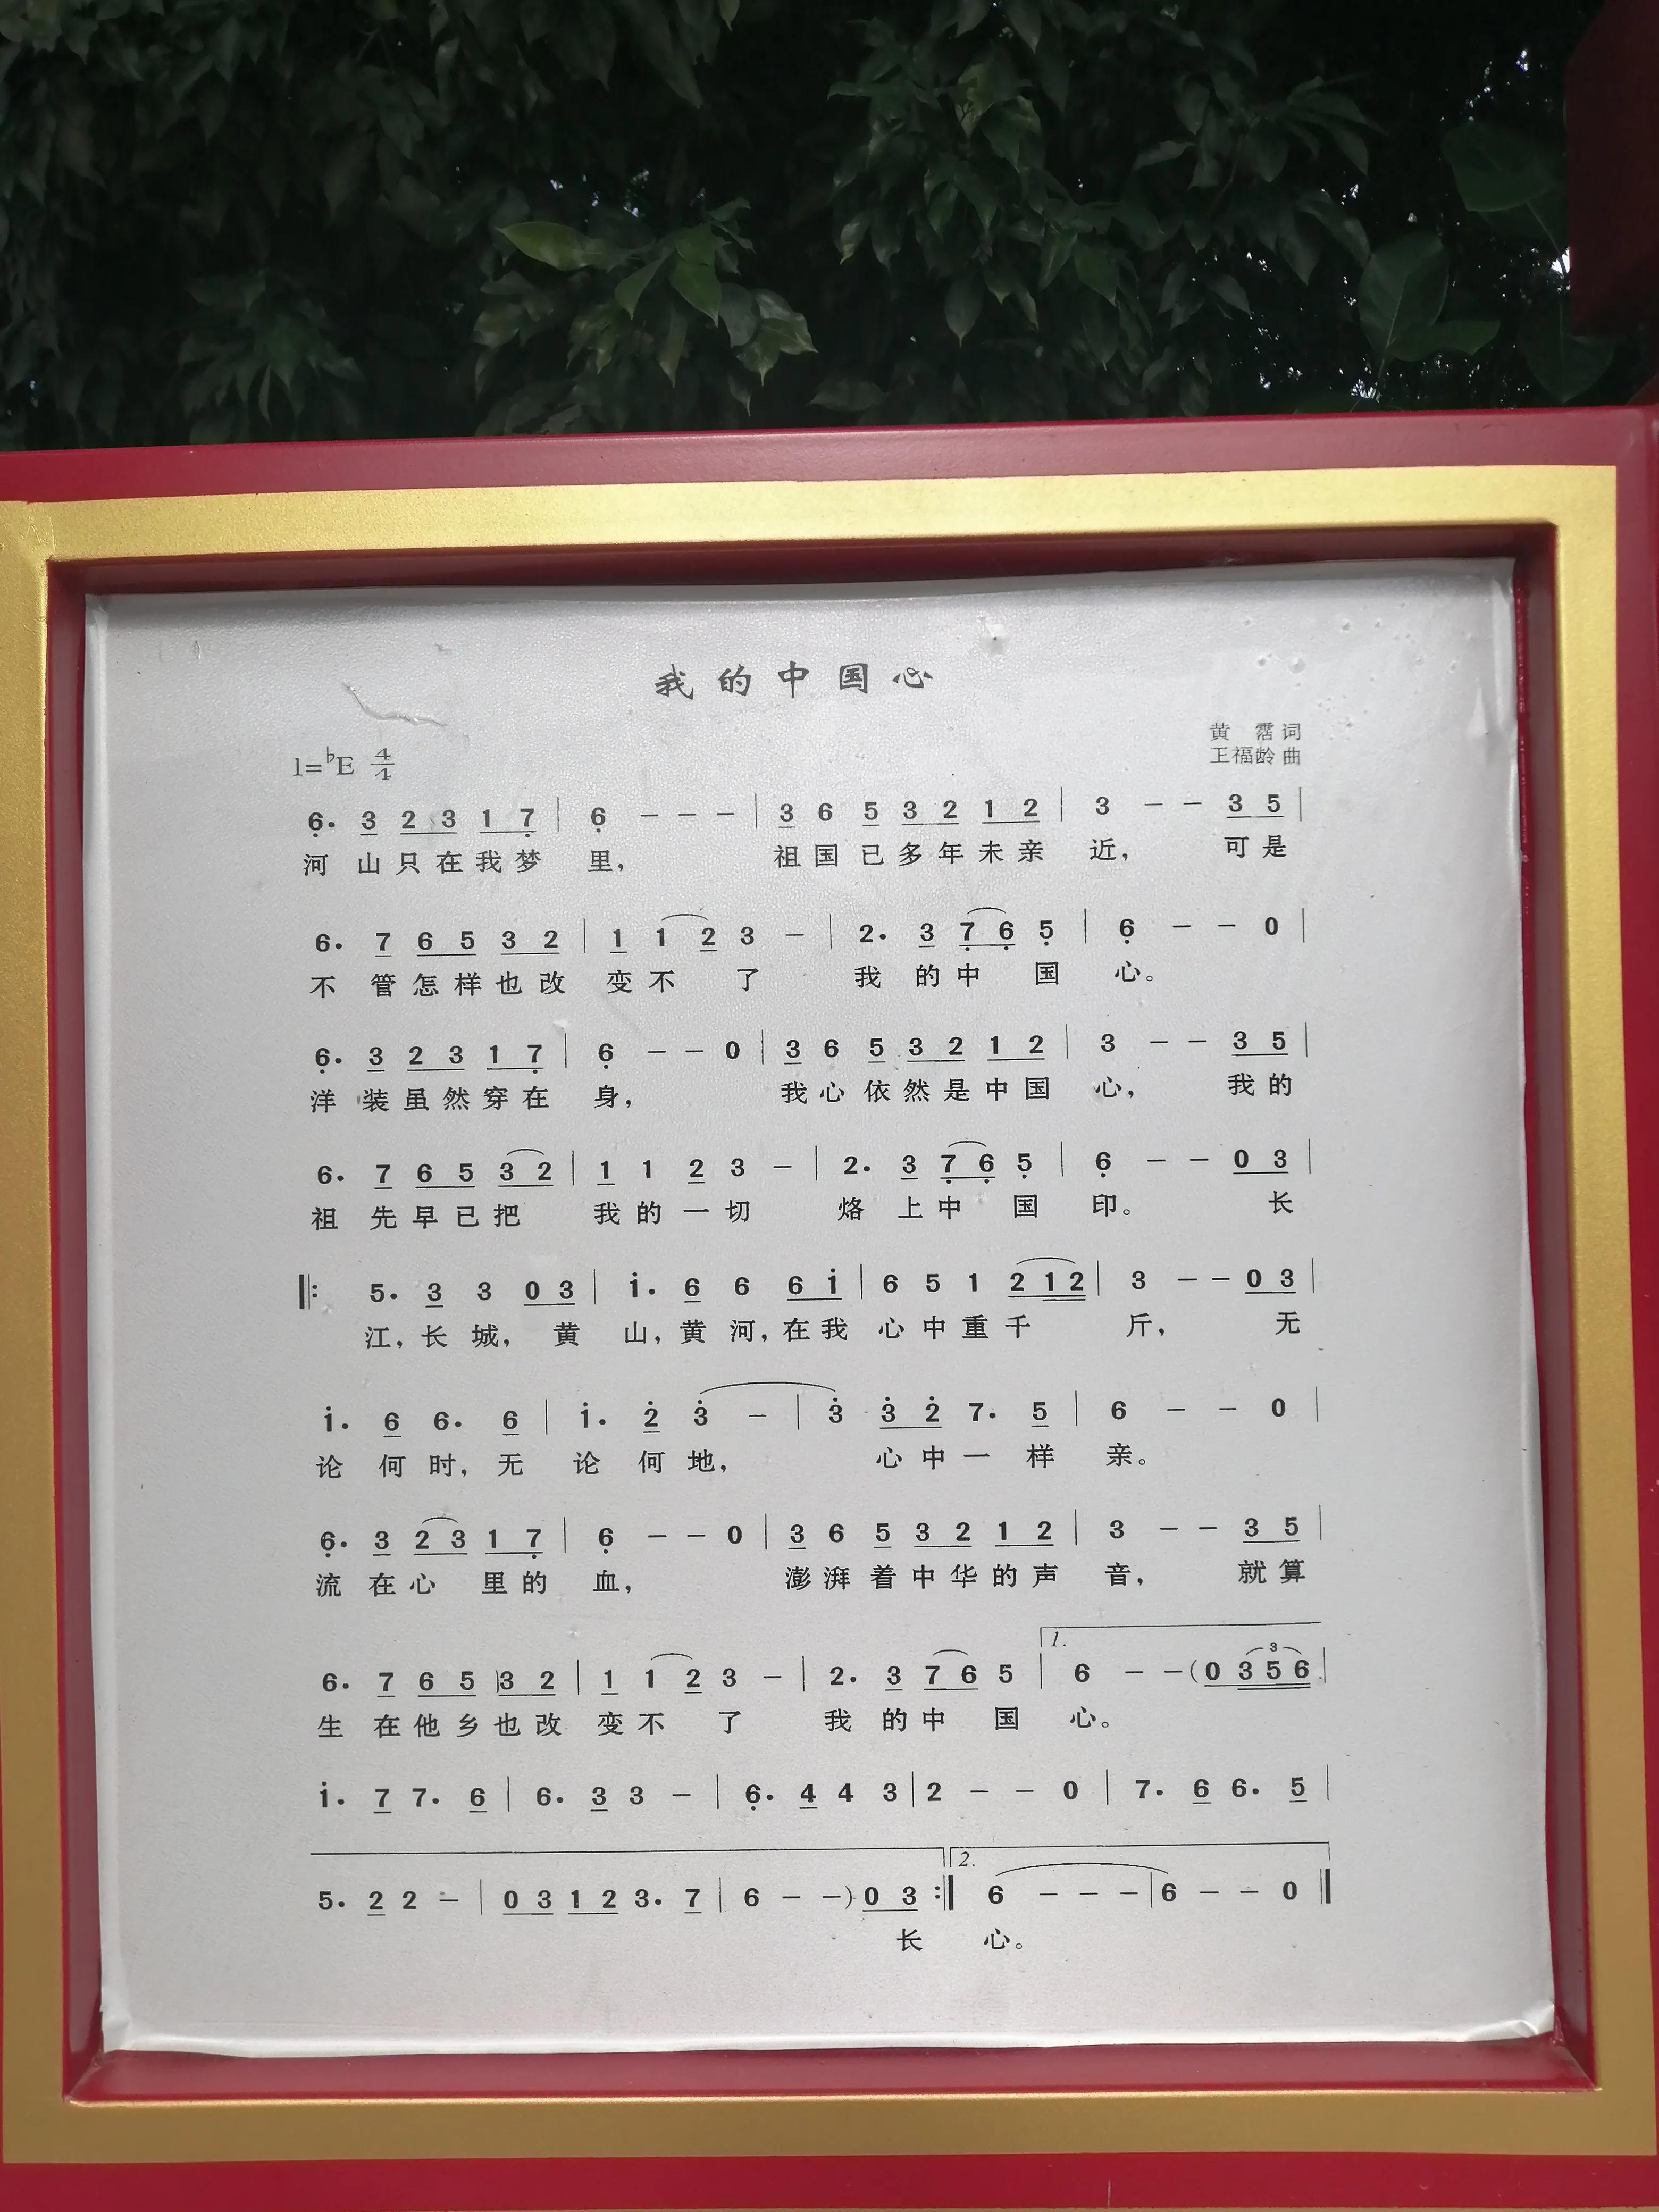 我的中国心
黄霑词
王福龄曲
1=♭E 4/4
6̣. 3 2 3 1 7̣ | 6̣ - - - | 3 6 5 3 2 1 2 | 3 - - 3 5 |
河山只在我梦里, 祖国已多年未亲近, 可是
6. 7 6 5 3 2 | 1 1 2 3 - | 2. 3 7̣ 6̣ 5̣ | 6̣ - - 0 |
不管怎样也改变不了 我的中国心。
6̣. 3 2 3 1 7̣ | 6̣ - - 0 | 3 6 5 3 2 1 2 | 3 - - 3 5 |
洋装虽然穿在身, 我心依然是中国心, 我的
6. 7 6 5 3 2 | 1 1 2 3 - | 2. 3 7̣ 6̣ 5̣ | 6̣ - - 0 3 |
祖先早已把 我的一切 烙上中国印。 长
‖: 5. 3 3 0 3 | i. 6 6 6 i | 6 5 1 2 1 2 | 3 - - 0 3 |
江, 长城, 黄山, 黄河, 在我心中重千斤, 无
i. 6 6. 6 | i. 2̇ 3̇ - | 3̇ 3̇ 2̇ 7. 5 | 6 - - 0 |
论何时, 无论何地, 心中一样亲。
6̣. 3 2 3 1 7̣ | 6̣ - - 0 | 3 6 5 3 2 1 2 | 3 - - 3 5 |
流在心里的血, 澎湃着中华的声音, 就算
1.
6. 7 6 5 3 2 | 1 1 2 3 - | 2. 3 7 6 5 | 6 - - (0 3 5 6 |
3
生在他乡也改变不了 我的中国心。
i. 7 7. 6 | 6. 3 3 - | 6̣. 4 4 3 | 2 - - 0 | 7. 6 6. 5 |
2.
5. 2 2 - | 0 3 1 2 3. 7 | 6 - -) 0 3 :‖ 6 - - - | 6 - - 0 ‖
长 心。